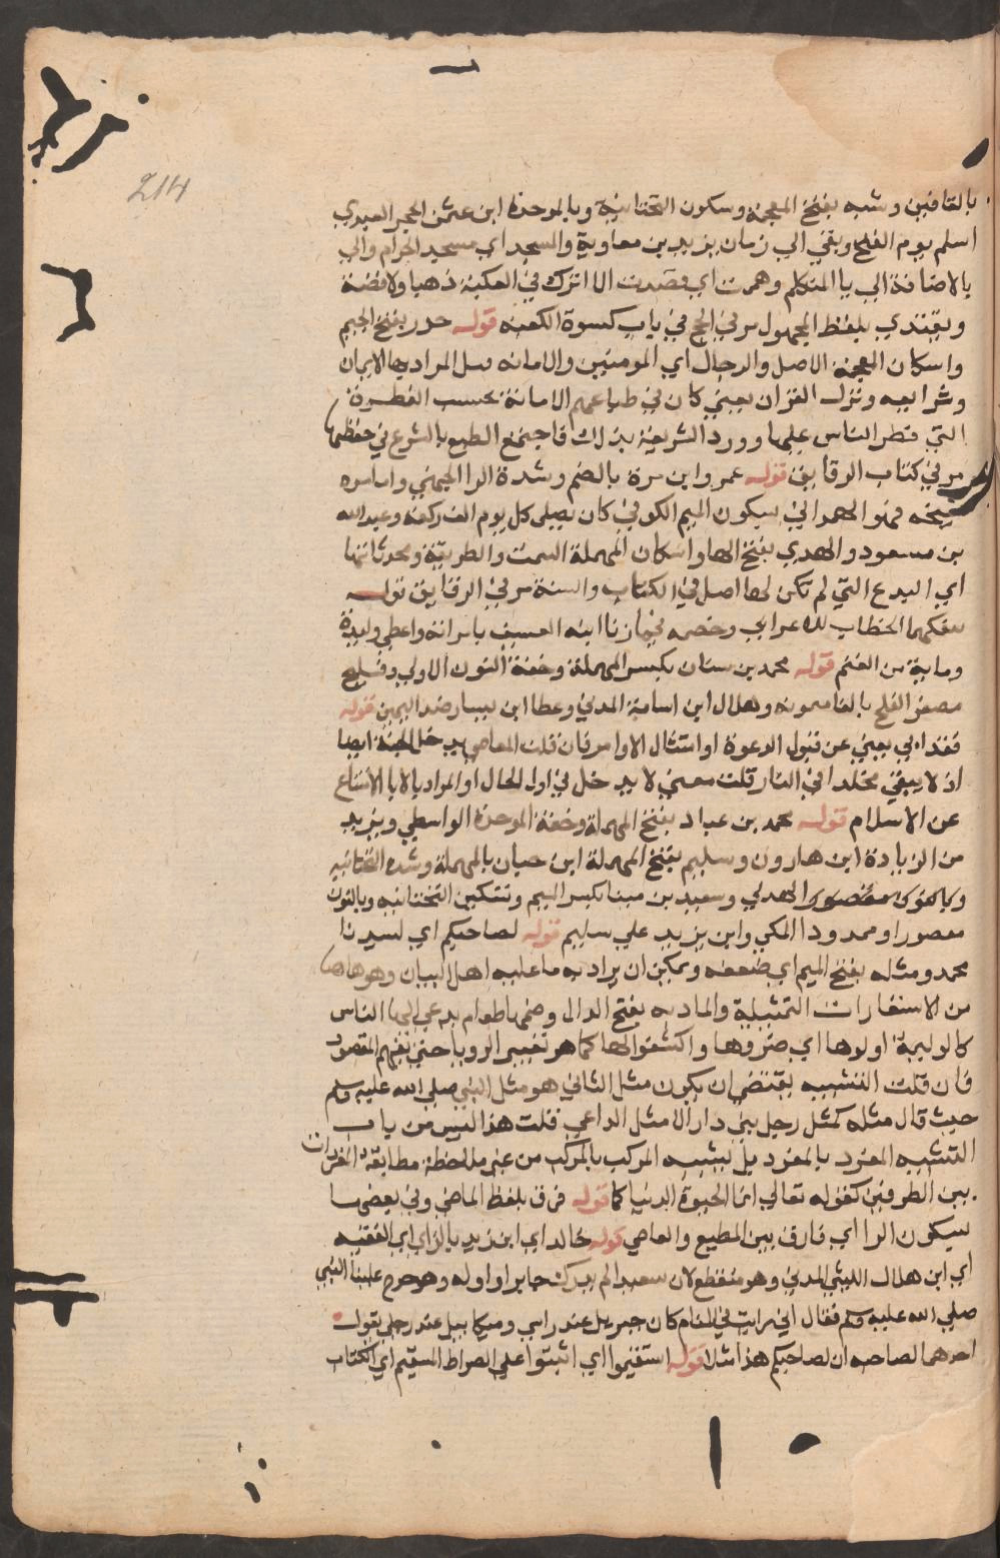 214
بالقافين وشبه بفتح المعجمة وسكون التحتانية وبالموحدة ابن عثمن الحجر العبدري
اسلم يوم الفتح وبقي الي زمان يزيد بن معاوية والمسجد اي مسجد الحرام والي
بالاضافة الي يا المتكلم وهممت اي قصدت الا اترك في الكعبة ذهبا ولا فضة
ويقتدي بلفظ المجهول مر في الحج في باب كسوة الكعبة قوله جدر بفتح الجيم
واسكان المعجمة الاصل والرجال اي المومنين والامانه قيل المراد بها الايمان
وشرايعه ونزل القران يعني كان في طباعهم الامانة بحسب الفطرة
التي فطر الناس عليها وورد الشريعة بذلك فاجتمع الطبع بالشرع في حفظها
مر في كتاب الرقايق قوله عمرو ابن مرة بالضم وشدة الرا الجهني واما مره
شيخه فهو الهمداني بسكون الميم الكوفي كان يصلي كل يوم الف ركعة وعبد الله
بن مسعود والهدي بفتح الها واسكان المهملة السمت والطريقة ومحدثاتها
اي البدع التي لم تكن لها اصل في الكتاب والسنة مر في الرقايق قوله
بينكما الخطاب للاعرابي وخصمه فيما زنا ابنه العسيف بامرانه واعطي وليدة
وماية من الغنم قوله محمد بن سنان بكسر المهملة وخفة النون الاولي وفليح
مصغر الفلح بالفا وهلال ابن اسامة المدني وعطا ابن يسار ضد اليمين قوله
فقد ابي يعني عن قبول الدعوة او امتثال الاوامر فان قلت العاصي يدخل الجنة ايضا
اذ لا يبقي مخلدا في النار قلت معني لا يدخل في اول الحال او المراد بالابا الامتناع
عن الاسلام قوله محمد بن عباد بفتح المهملة وخفة الموحدة الواسطي ويزيد
من الزيادة ابن هارون وسليم بفتح المهملة ابن حيان بالمهملة وشدة التحتانيه
وبالنون مقصورا الهذلي وسعيد بن مينا بكسر الميم وتسكين التحتانيه وبالنون
مقصورا وممدودا المكي وابن يزيد علي سليم قوله لصاحبكم اي لسيدنا
محمد ومثله بفتح الميم اي صفته ويمكن ان يراد به ما عليه اهل البيان وهو هاهنا
من الاستعارات التمثيلية والمادبه بفتح الدال وضمها طعام يدعي اليها الناس
كالوليمة اولوها اي فسروها واكشفوا لها كما هو تعبير الرويا حتي يفهم المقصود
فان قلت التشبيه يقتضي ان يكون مثل الثاني هو مثل النبي صلي الله عليه وسلم
حيث قال مثله كمثل رجل بني دارا لا مثل الداعي قلت هذا ليس من باب
التشبيه المفرد بالمفرد بل تشبيه المركب بالمركب من غير ملاحظة مطابقة المفردات
بين الطرفين كقوله تعالي انما الحيوة الدنيا كما قوله فرق بلفظ الماضي وفي بعضها
بسكون الرا اي فارق بين المطيع والعاصي قوله خالد اي ابن زيد بالزاي اي الفقيه
اي ابن هلال الليثي المدني وهو منقطع لان سعيدا لم يدرك جابرا واوله وهو خرج علينا النبي
صلي الله عليه وسلم فقال اني رايت في المنام كان جبريل عند راسي وميكاييل عند رجلي يقول
احدهما لصاحبه ان لصاحبكم هذا مثلا قوله استقيموا اي اثبتوا علي الصراط المستقيم اي الكتاب